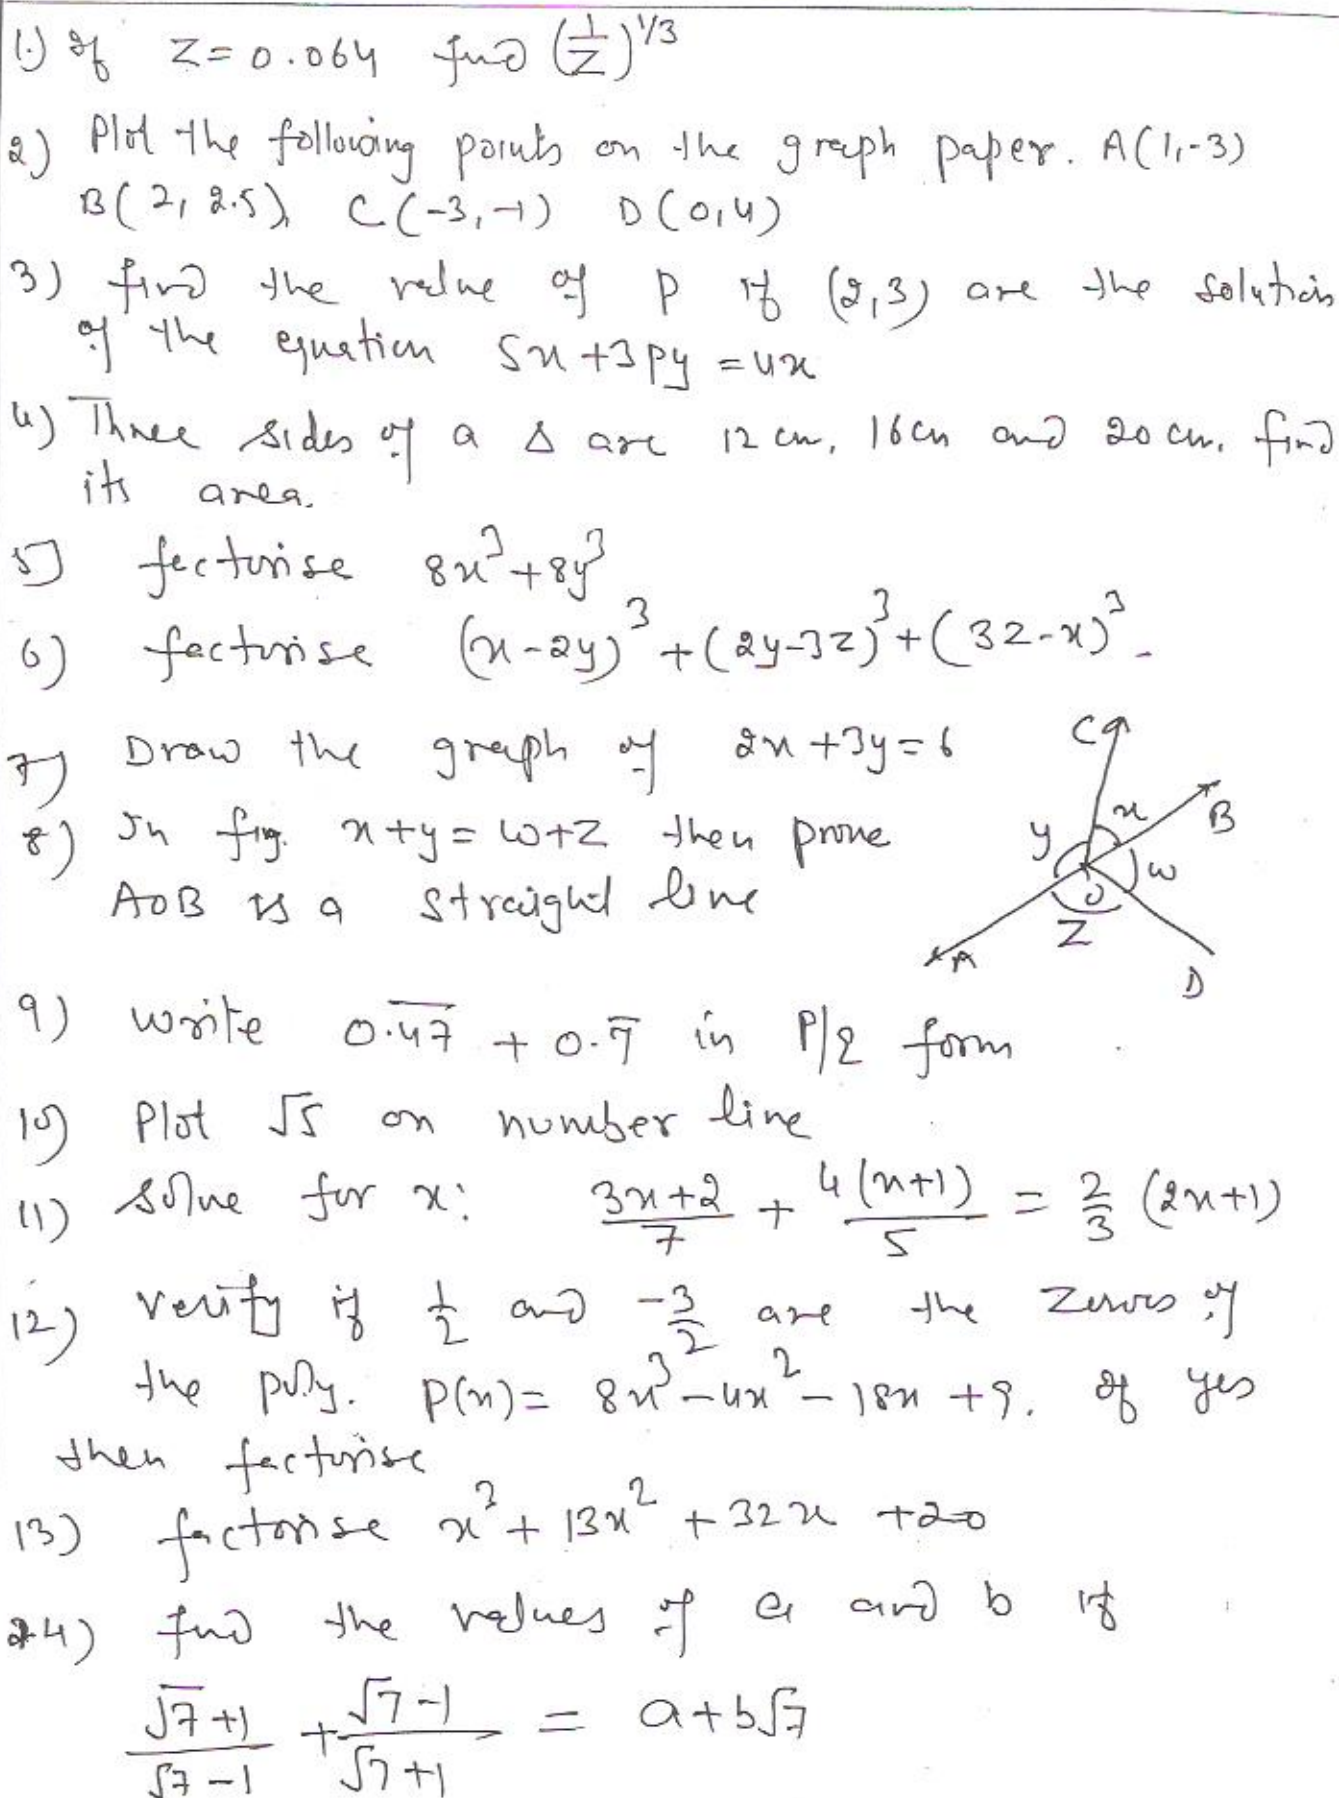 1.) If Z=0.064 find (1/Z)^1/3
2) Plot the following points on the graph paper. A(1,-3)
B(2, 2.5), C(-3,-1) D(0,4)
3) find the value of P if (2,3) are the solution
of the equation 5x+3py=4x
4) Three sides of a Δ are 12 cm, 16cm and 20 cm. find
its area.
5] factorise 8x³+8y³
6) factorise (x-2y)³+(2y-3z)³+(3z-x)³.
7) Draw the graph of 2x+3y=6
8) In fig. x+y=w+z then prove
AOB is a straight line
C
x
B
y
w
O
Z
A
D
9) write 0.4̅7̅ + 0.7̅ in P/q form
10) Plot √5 on number line
11) solve for x: (3x+2)/7 + 4(x+1)/5 = 2/3 (2x+1)
12) verify if 1/2 and -3/2 are the zeroes of
the poly. P(x)= 8x³-4x²-18x+9. If yes
then factorise
13) factorise x³+13x²+32x+20
14) find the values of a and b if
(√7+1)/(√7-1) + (√7-1)/(√7+1) = a+b√7